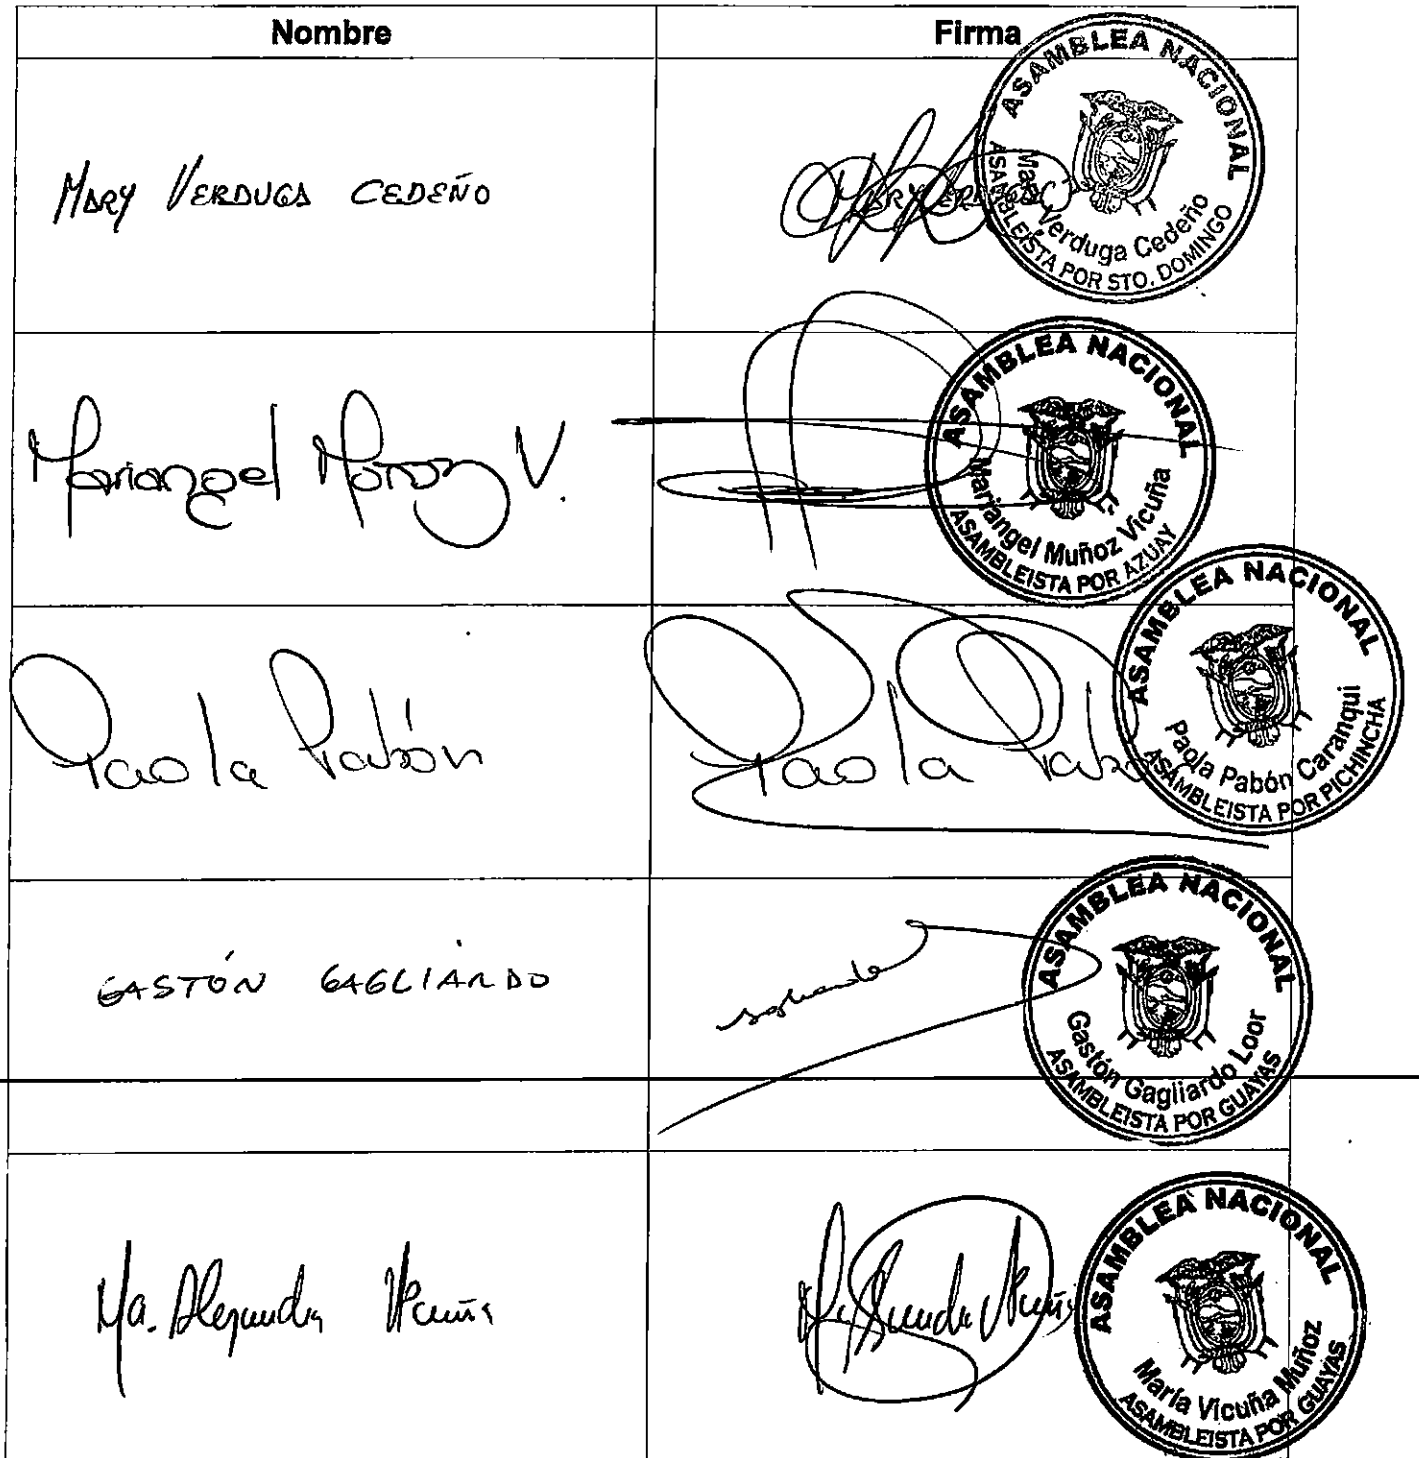 Nombre
Firma
MARY VERDUGA CEDEÑO
MARY VERDUGA C
ASAMBLEA NACIONAL
Mary Verduga Cedeño
ASAMBLEISTA POR STO. DOMINGO
Mariangel Muñoz V.
ASAMBLEA NACIONAL
Mariangel Muñoz Vicuña
ASAMBLEISTA POR AZUAY
Paola Pabón
Paola Pabón
ASAMBLEA NACIONAL
Paola Pabón Caranqui
ASAMBLEISTA POR PICHINCHA
GASTÓN GAGLIARDO
ASAMBLEA NACIONAL
Gastón Gagliardo Loor
ASAMBLEISTA POR GUAYAS
Ma. Alejandra Vicuña
Ma. Alejandra Vicuña
ASAMBLEA NACIONAL
María Vicuña Muñoz
ASAMBLEISTA POR GUAYAS